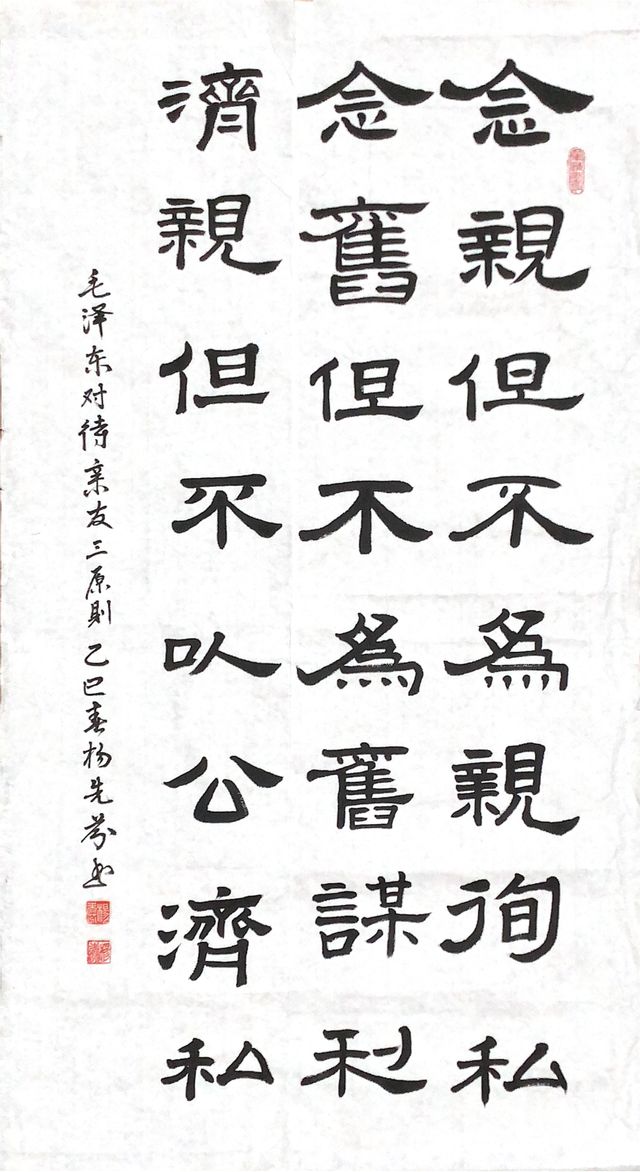 念親但不為親徇私
念舊但不為舊謀利
濟親但不以公濟私
毛泽东对待亲友三原則乙巳春杨先芬书